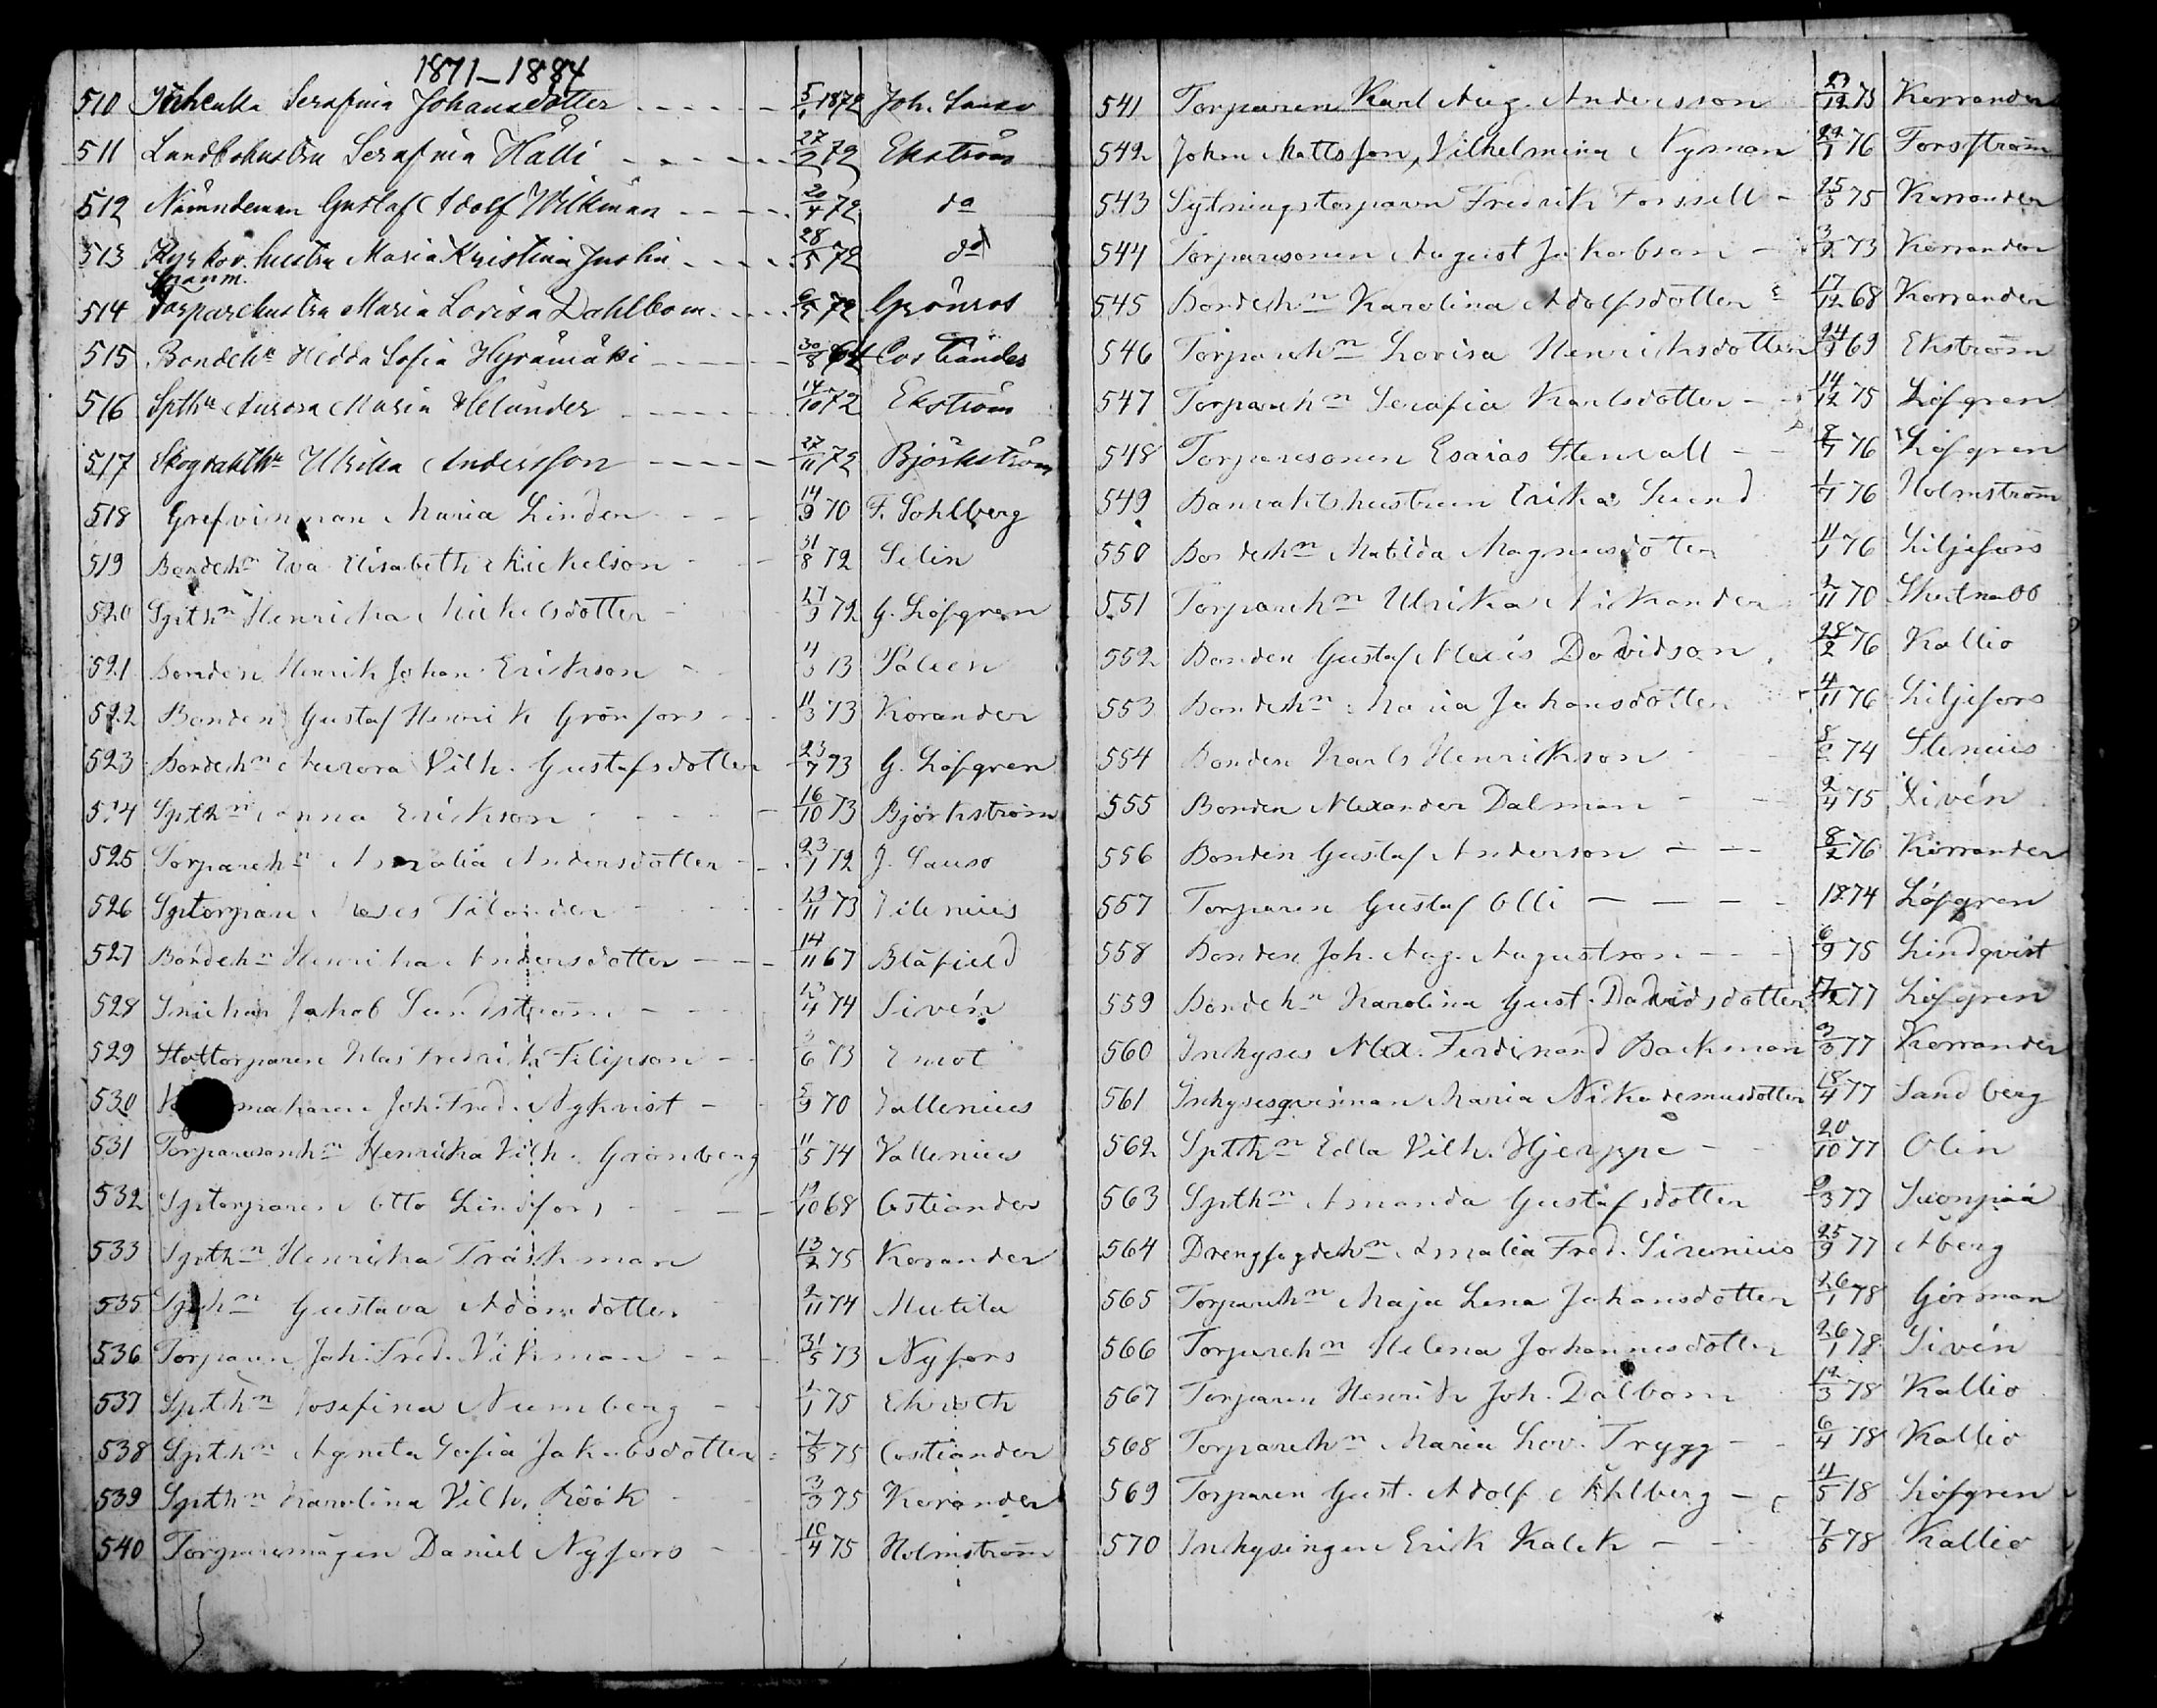 1871–1884
510 Serafina Johansdotter 5/1 1872 Joh. Sauso
511 Landbohustru Serafina Hälli 27/2 72 Ekström
512 Nämndeman Gustaf Adolf Wikman 20/4 72 do
513 Kyrkov. hustru Maria Kristina Juslin 28/5 72 do
Spanm.
514 Torparehustru Maria Lovisa Dahlbom 6/5 72 Grönros
515 Bondeh. Hedda Sofia Hyrämäki 30/8 64 Costiander
516 Spth. Aurora Maria Helander 14/10 72 Ekström
517 Skogvakth. Ulrika Andersson 27/11 72 Björkström
518 Maria Linden 14/9 70 F. Sohlberg
519 Bondehn Eva Elisabeth Mickelson 31/8 72 Selin
520 Spthn Henrika Mickelsdotter 9 72 G. Löfgren
521 Bonden Henrik Johan Erikson Palien
522 Bonden Gustaf Henrik Grönfors 11/3 73 Korander
523 Bondehn Aurora Vilh. Gustafsdotter 23/7 73 G. Löfgren
5.4 Spthn Anna Erikson 16/10 73 Björkström
525 Torparehn Amalia Andersdotter 23/1 72 J. Sauso
526 Sptorparn Moses Silander 13/11 73 Vilenius
527 Bondehn Henrika Andersdotter 14/11 67 Blåfield
528 Jakob Sundström 13/4 74 Sivén
529 Klas Fredrik Filipson 3/6 73
530 Joh. Fred. Nykvist 5/9 70 Vallenius
531 Torparesonhn Henrika Vilh. Grönberg 11/5 74 Vallenius
532 Sptorparen Otto Lindfors 19/10 68 Costiander
533 Spthn Henrika Träskman 13/2 75 Korander
535 Spthn Gustava Adamsdotter 9/11 74 Mutila
536 Torparen Joh. Fred. Vikman 31/5 73 Nyfors
537 Spthn Josefina Numberg 1/1 75 Ekroth
538 Spthn Agneta Sofia Jakobsdotter 7/5 75 Costiander
539 Spthn Karolina Vilh. Röök 3/3 75 Korander
540 Torparemågen Daniel Nyfors 10/4 75 Holmström
541 Torparen Karl Aug. Andersson 27/12 75 Korrander
542 Johan Mattsson, Vilhelmina Nyman 29/1 76 Forsström
543 Sytningstorparen Fredrik Forssell 25/3 75 Korrander
544 Torparesonen August Jakobson 3/2 73 Korrander
545 Bondehn Karolina Adolfsdotter 17/12 68 Korrander
546 Torparehn Lovisa Henriksdotter 24/9 69 Ekström
547 Torparehn Serafia Karlsdotter 14/12 75 Löfgren
548 Torparesonen Esaias Stenvall 8/1 76 Löfgren
549 Banvaktshustrun Erika Lund 1/1 76 Holmström
550 Bondehn Matilda Magnusdotter 11/1 76 Liljefors
551 Torparehn Ulrika Nikander 2/11 70 Skutnabb
552 Bonden Gustaf Alexis Davidson 28/2 76 Kallio
553 Bondehn Maria Johansdotter 4/11 76 Liljefors
554 Bonden Karls Henrikson 74 Stenius
555 Bonden Alexander Dalman 2/4 75 Sivén
556 Bonden Gustaf Anderson 8/2 76 Korrander
557 Torparen Gustaf Olli 1874 Löfgren
558 Bonden Joh. Aug. Augustson 6/9 75 Lindqvist
559 Bondehn Karolina Gust. Davidsdotter 77 Löfgren
560 Inhyses Alex. Ferdinand Backman 3/3 77 Korrander
561 Inhysesqvinnan Maria Nikodemusdotter 18/4 77 Sandberg
562 Spthn Edla Vilh. Hjerppe 20/10 77 Olin
563 Spthn Amanda Gustafsdotter 9/3 77 Suonpää
564 Drengfogdehn Amalia Fred. Sirenius 25/9 77 Åberg
565 Torparehn Maja Lena Johansdotter 26/1 78 Görman
566 Torparehn Helena Johannesdotter 26/1 78 Sivén
567 Torparen Henrik Joh. Dalbom 12/3 78 Kallio
568 Torparehn Maria Lov. Trygg 6/4 78 Kallio
569 Torparen Gust. Adolf Åhlberg 11/5 78 Löfgren
570 Inhysingen Erik Kalek 7/5 78 Kallio